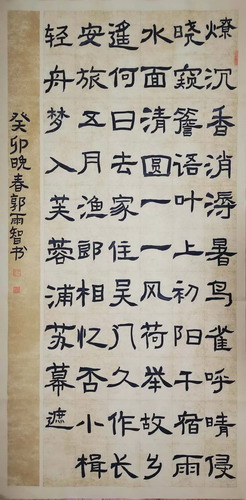 燎沉香消溽暑鸟雀呼晴侵
晓窥簷语叶上初阳干宿雨
水面清圆一一风荷举故乡
遥何日去家住吴门久作长
安旅五月渔郎相忆否小楫
轻舟梦入芙蓉浦苏幕遮
癸卯晚春郭雨智书